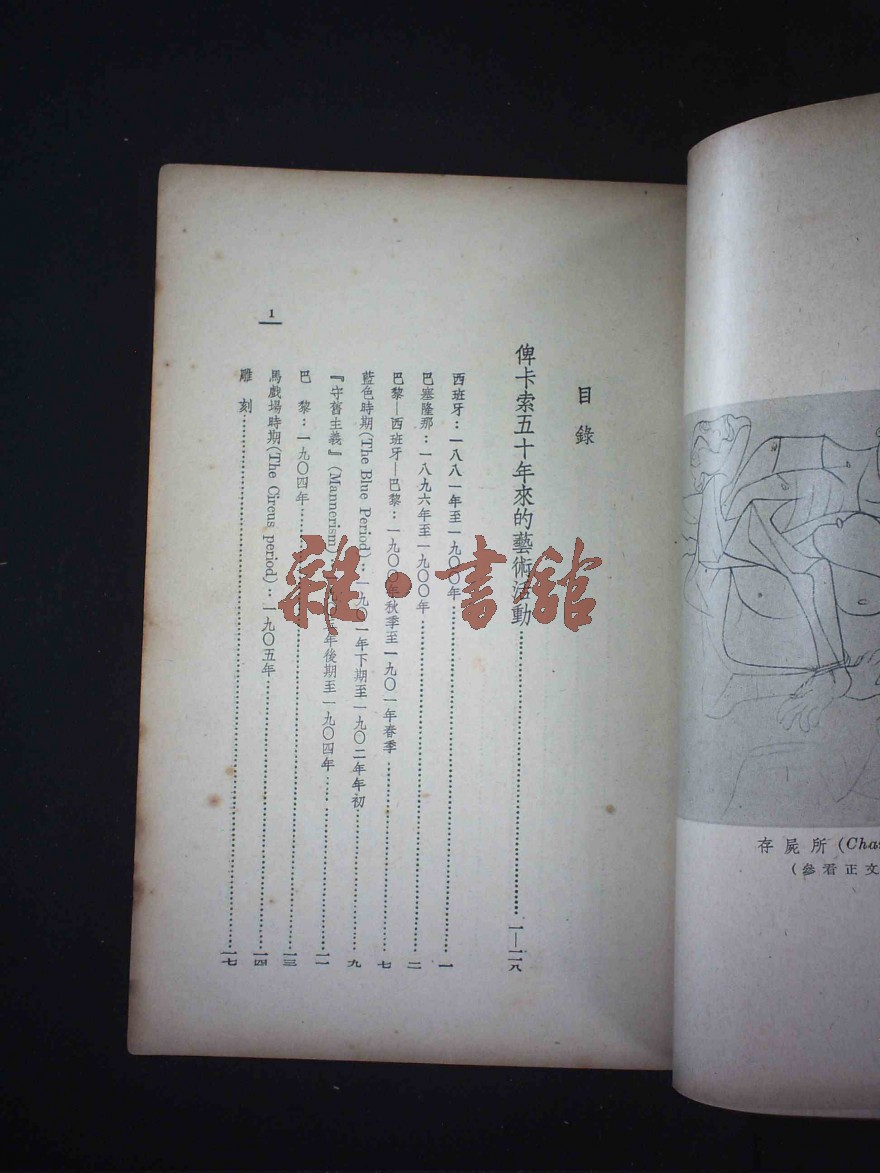 目錄
俾卡索五十年來的藝術活動……一—一二八
西班牙：一八八一年至一九〇〇年……一
巴塞隆那：一八九六年至一九〇〇年……二
巴黎—西班牙—巴黎：一九〇〇年秋季至一九〇一年春季……七
藍色時期(The Blue Period)：一九〇一年下期至一九〇二年年初……九
『守舊主義』(Mannerism)：一九〇二年後期至一九〇四年……一一
巴黎：一九〇四年……一三
馬戲場時期(The Circus period)：一九〇五年……一四
雕刻……一七
1
雜·書館
存屍所(Chas
(參看正文